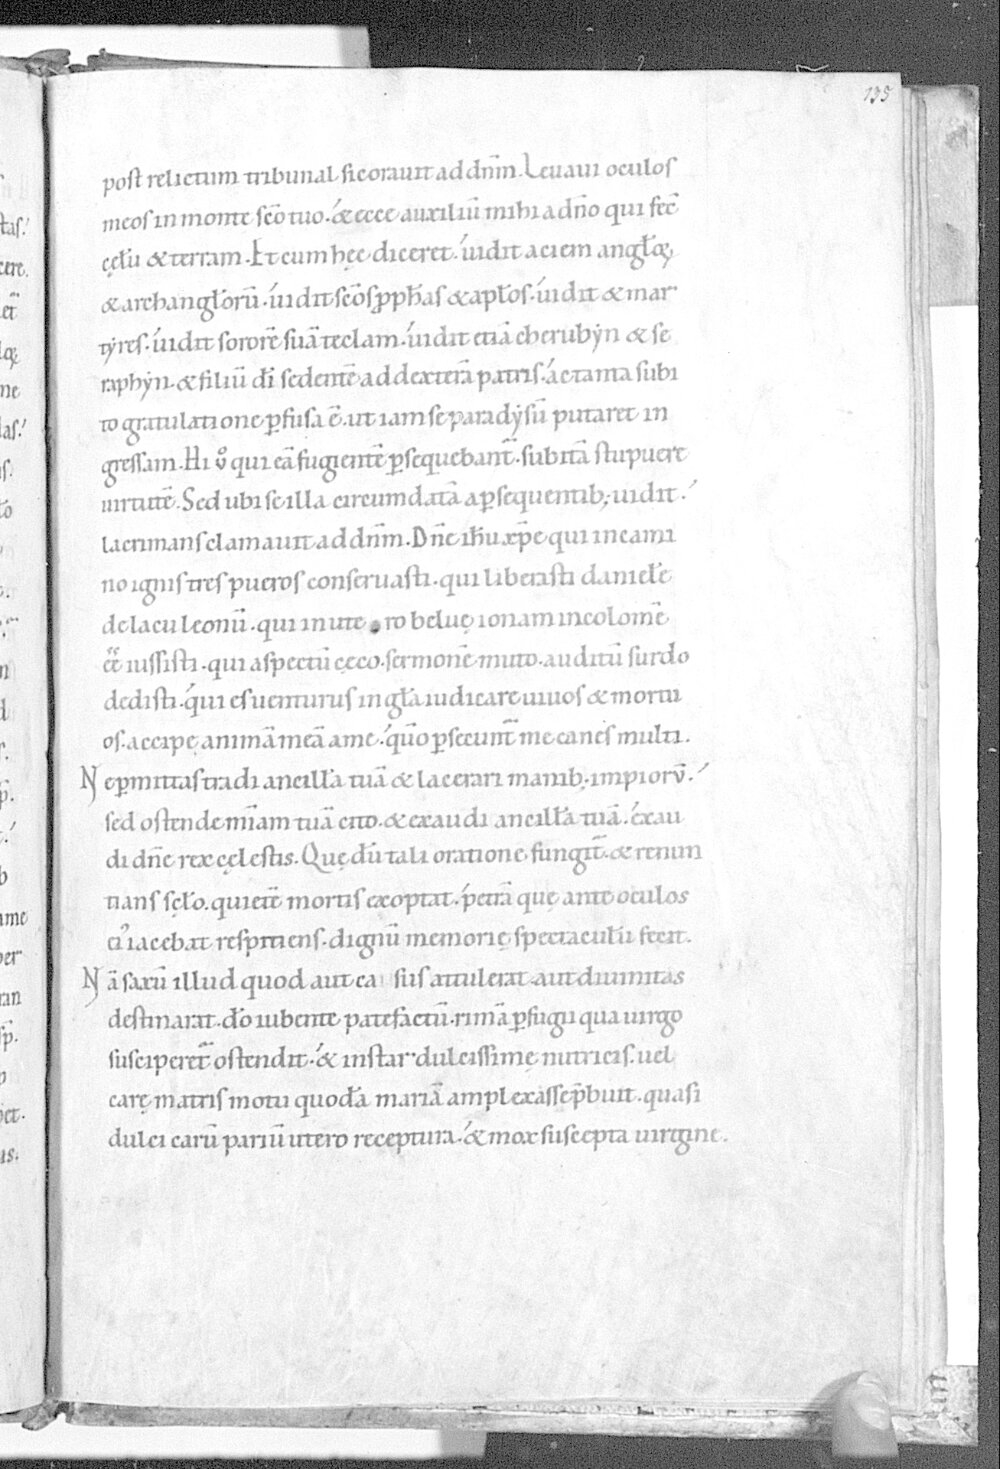 135
post relictum tribunal sic orauit ad dnm̄. Leuaui oculos
meos in monte scō tuo. & ecce auxiliū mihi a dn̄o qui fec̄
cęlū & terram. Et cum hęc diceret. uidit aciem anglꝝ
& archanglorū. uidit scōs ꝓphas & aplos. uidit & mar
tẏres. uidit sororē suā teclam. uidit etiā cherubẏn & se
raphẏn. & filiū dī sedentē ad dexterā patris. ac tanta subi
to gratulatione ꝑfusa ē. ut iam se paradẏsū putaret in
gressam. Hi uº qui eā fugientē ꝑsequebant̄. subitā stupuere
uirtutē. Sed ubi se illa circumdatā a ꝑsequentib; uidit.
lacrimans clamauit ad dnm̄. Dn̄e ihu xp̄e qui in cami
no ignis tres pueros conseruasti. qui liberasti danielē
de lacu leonū. qui in ute ro beluę ionam incolomē
eē iussisti. qui aspectū cęco. sermonē muto. auditū surdo
dedisti. qui es uenturus in gła iudicare uiuos & mortu
os. accipe animā meā a me. qūo ꝑsecunt̄ me canes multi.
Ne ꝑmittas tradi ancillā tuā & lacerari manib; impiorū.
sed ostende mīam tuā cito. & exaudi ancillā tuā. exau
di dn̄e rex cęlestis. Quę dū tali oratione fungit̄. & renun
tians sęlo. quietē mortis exoptat. petrā que ante oculos
ei᾽ iacebat respiciens. dignū memorię spectaculū fecit.
Nā saxū illud quod aut ca sus attulerat aut diuinitas
destinarat. dō iubente patefactū. rimā ꝑfugii qua uirgo
susciperet̄ ostendit. & instar dulcissimę nutricis. uel
carę matris motu quodā mariā amplexasse p̄buit. quasi
dulci carū pariū utero receptura. & mox suscepta uirgine.